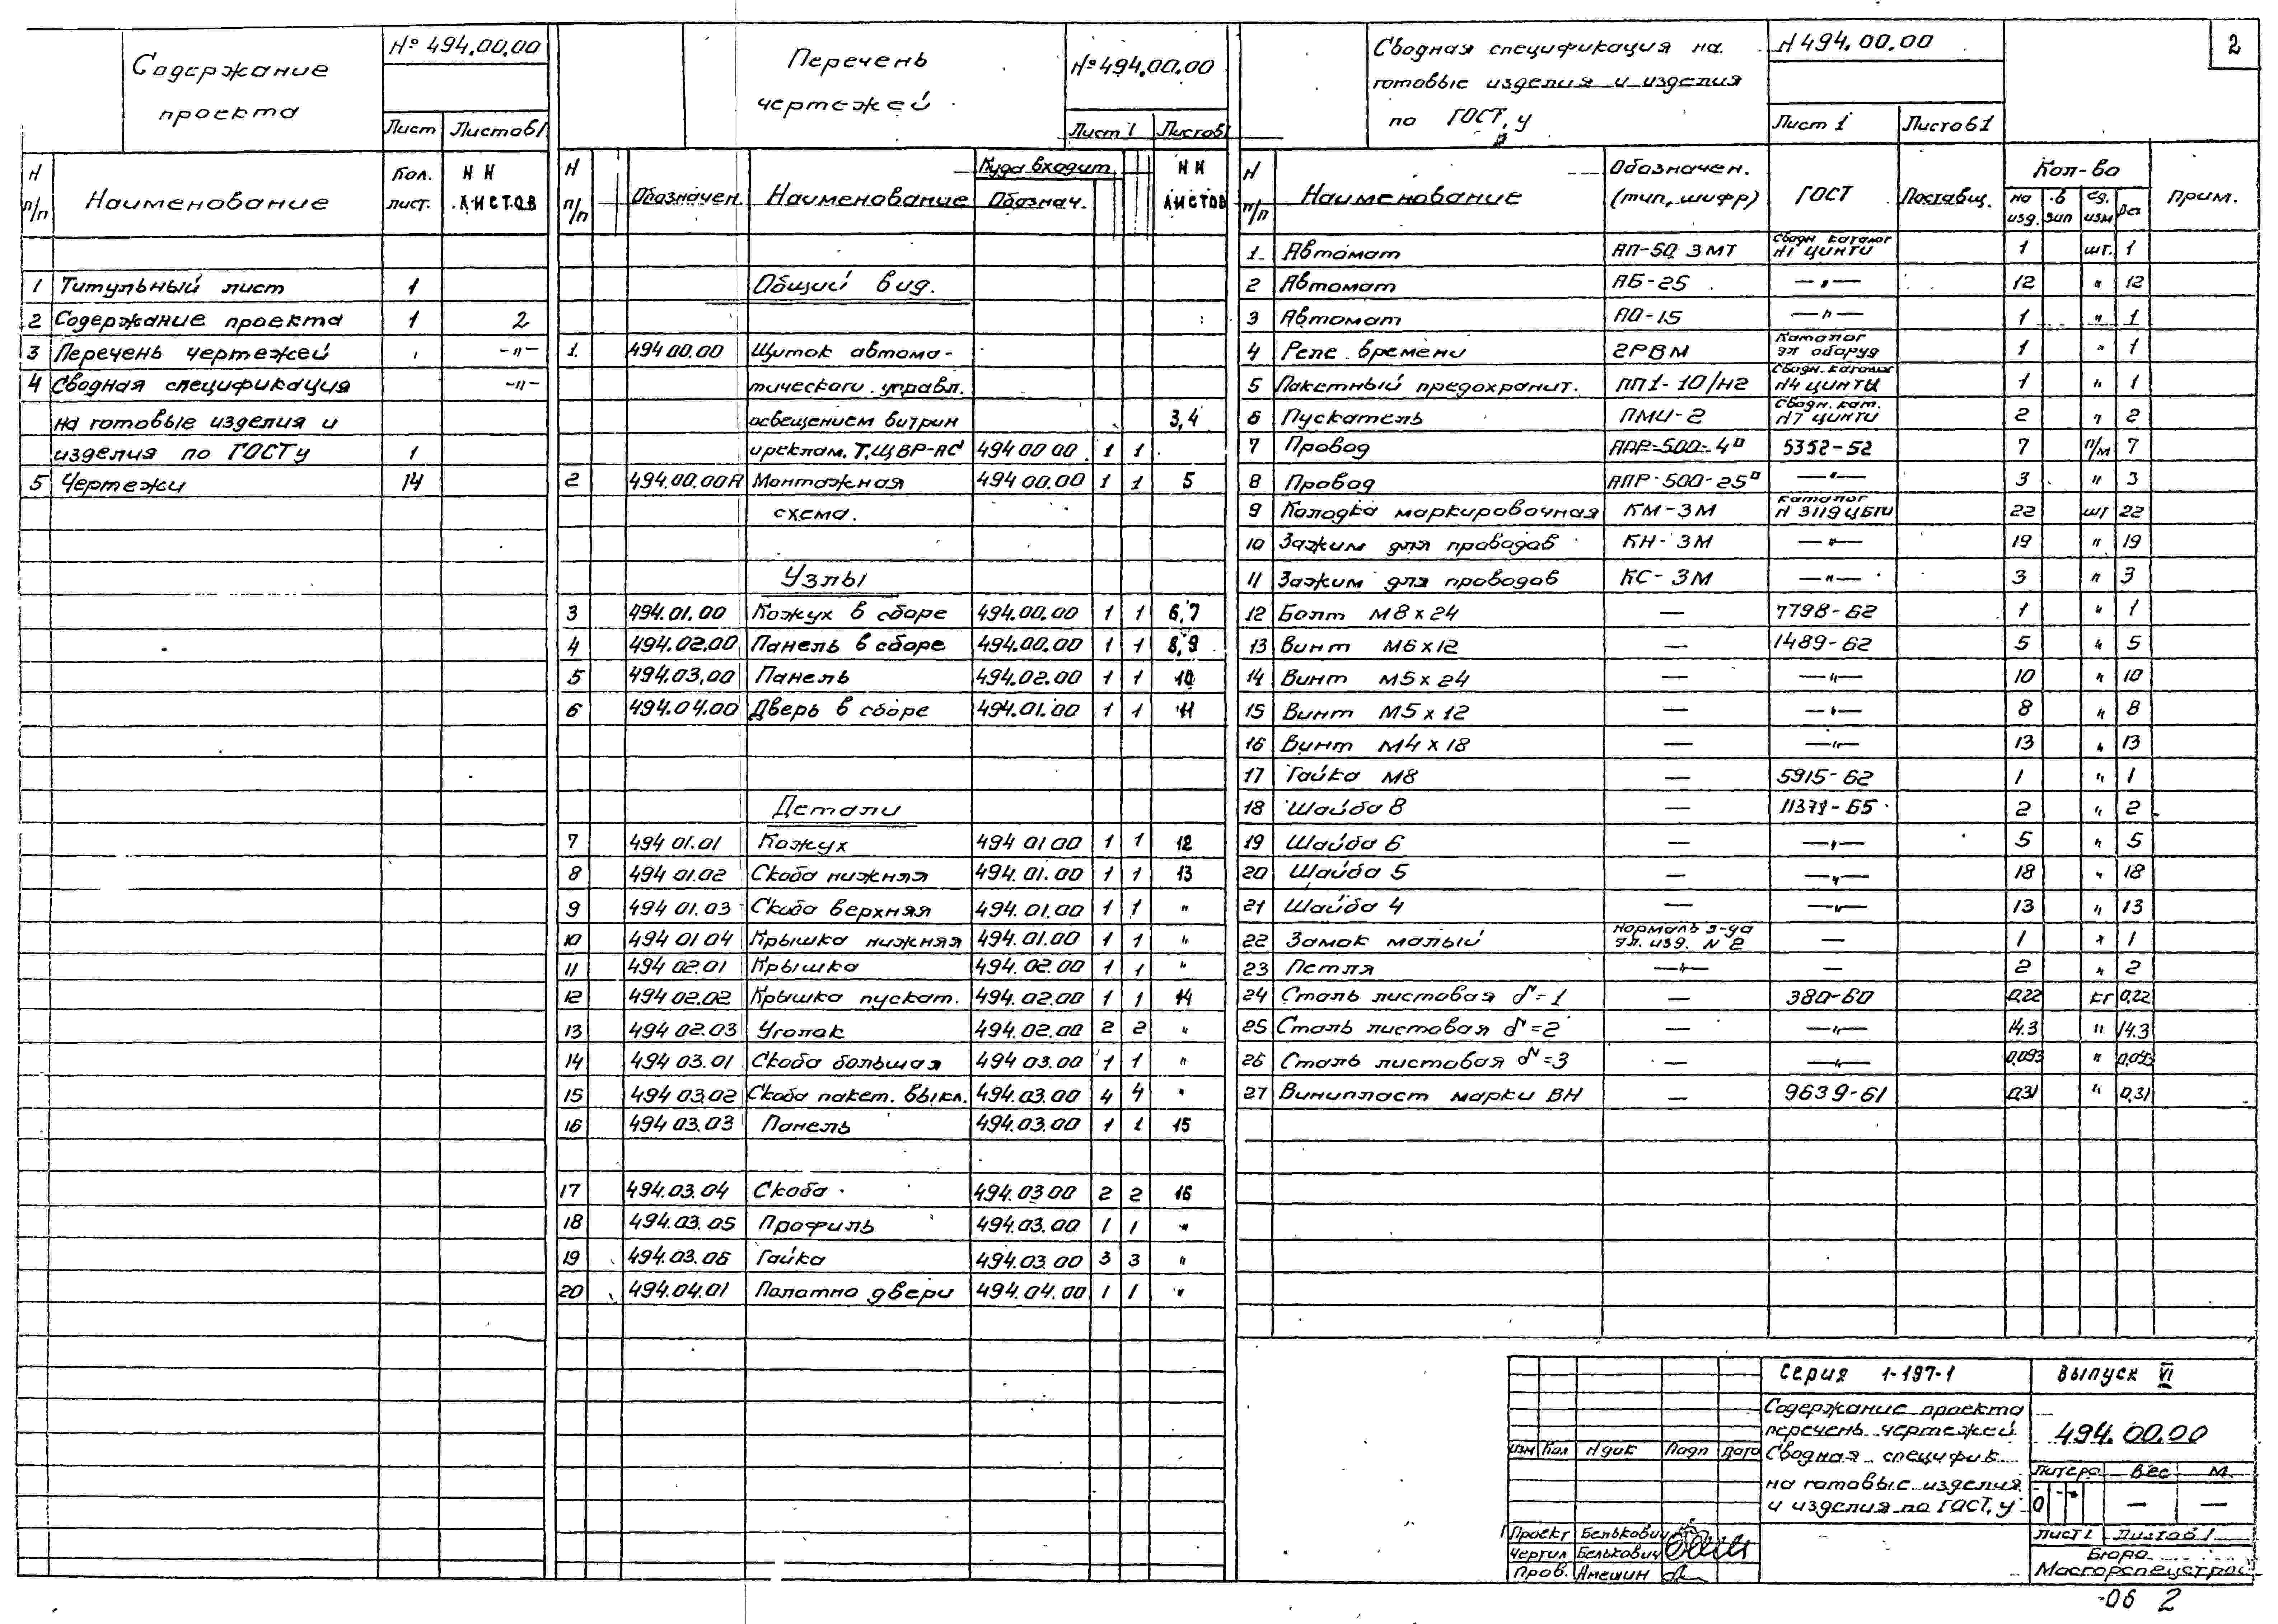 Содержание
проекта
№ 494.00.00
Лист Листов 1
N п/п Наименование Кол. лист. NN листов
1 Титульный лист 1
2 Содержание проекта 1 2
3 Перечень чертежей -"-
4 Сводная спецификация -"-
на готовые изделия и
изделия по ГОСТу 1
5 Чертежи 14
Перечень
чертежей
№ 494.00.00
Лист 1 Листов 1
N п/п Обозначен. Наименование Куда входит Обознач. NN листов
Общий вид.
1. 494 00.00 Щиток автома-
тическаги управл.
освещением витрин 3,4
и реклам. Т.ЩВР-АС 494 00 00 1 1
2 494.00.00А Монтажная 494 00.00 1 1 5
схема.
Узлы
3 494.01.00 Кожух в сборе 494.00.00 1 1 6,7
4 494.02.00 Панель в сборе 494.00.00 1 1 8,9
5 494.03.00 Панель 494.02.00 1 1 10
6 494.04.00 Дверь в сборе 494.01.00 1 1 11
Детали
7 494 01.01 Кожух 494 01 00 1 1 12
8 494 01.02 Скоба нижняя 494.01.00 1 1 13
9 494 01.03 Скоба верхняя 494.01.00 1 1 "
10 494 01 04 Крышка нижняя 494.01.00 1 1 "
11 494 02.01 Крышка 494.02.00 1 1 "
12 494 02.02 Крышка пускат. 494.02.00 1 1 14
13 494 02.03 Уголок 494.02.00 2 2 "
14 494 03.01 Скоба большая 494 03.00 1 1 "
15 494 03.02 Скоба пакет. выкл. 494.03.00 4 4 "
16 494 03.03 Панель 494.03.00 1 1 15
17 494.03.04 Скоба 494.03 00 2 2 16
18 494.03.05 Профиль 494.03.00 1 1 "
19 494.03.06 Гайка 494.03.00 3 3 "
20 494.04.01 Полотно двери 494.04.00 1 1 "
Сводная спецификация на
готовые изделия и изделия
по ГОСТ,у
N 494.00.00
Лист 1 Листов 1
2
N п/п Наименование Обозначен. (тип, шифр) ГОСТ Поставщ. Кол-во на изд. в зап ед. изм Прим.
1 Автомат АП-50 3МТ Сводн каталог N1 ЦИНТИ 1 шт. 1
2 Автомат АБ-25 —"— 12 " 12
3 Автомат АО-15 —"— 1 " 1
4 Реле времени 2РВМ Каталог эл оборуд 1 " 1
5 Пакетный предохранит. ПП1-10/Н2 Сводн. каталог N4 ЦИНТИ 1 " 1
6 Пускатель ПМИ-2 Сводн. кат. N7 ЦИНТИ 2 " 2
7 Провод АПР-500-4□ 5352-52 7 п/м 7
8 Провод АПР-500-25□ —"— 3 " 3
9 Колодка маркировочная КМ-3М каталог N 3119 ЦБТИ 22 шт 22
10 Зажим для проводов КН-3М —"— 19 " 19
11 Зажим для проводов КС-3М —"— 3 " 3
12 Болт М8х24 — 7798-62 1 " 1
13 Винт М6х12 — 1489-62 5 " 5
14 Винт М5х24 — —"— 10 " 10
15 Винт М5х12 — —"— 8 " 8
16 Винт М4х18 — —"— 13 " 13
17 Гайка М8 — 5915-62 1 " 1
18 Шайба 8 — 11371-65 2 " 2
19 Шайба 6 — —"— 5 " 5
20 Шайба 5 — —"— 18 " 18
21 Шайба 4 — —"— 13 " 13
22 Замок малый нормаль з-да эл. изд. N 2 — 1 " 1
23 Петля —"— — 2 " 2
24 Сталь листовая δ=1 — 380-60 0,22 кг 0,22
25 Сталь листовая δ=2 — —"— 14.3 " 14.3
26 Сталь листовая δ=3 — —"— 0,093 " 0,093
27 Винипласт марки ВН — 9639-61 0,31 " 0,31
Серия 1-197-1 Выпуск VI
Содержание проекта
перечень чертежей
Сводная специфик
на готовые изделия
и изделия по ГОСТ,у
494.00.00
изм Кол N док Подп дата
Литера Вес М
0 — —
Лист 1 Листов 1
Проект Белькович
Чертил Белькович
Пров. Амешин
Бюро
Мосгорспецстрой
-06 2